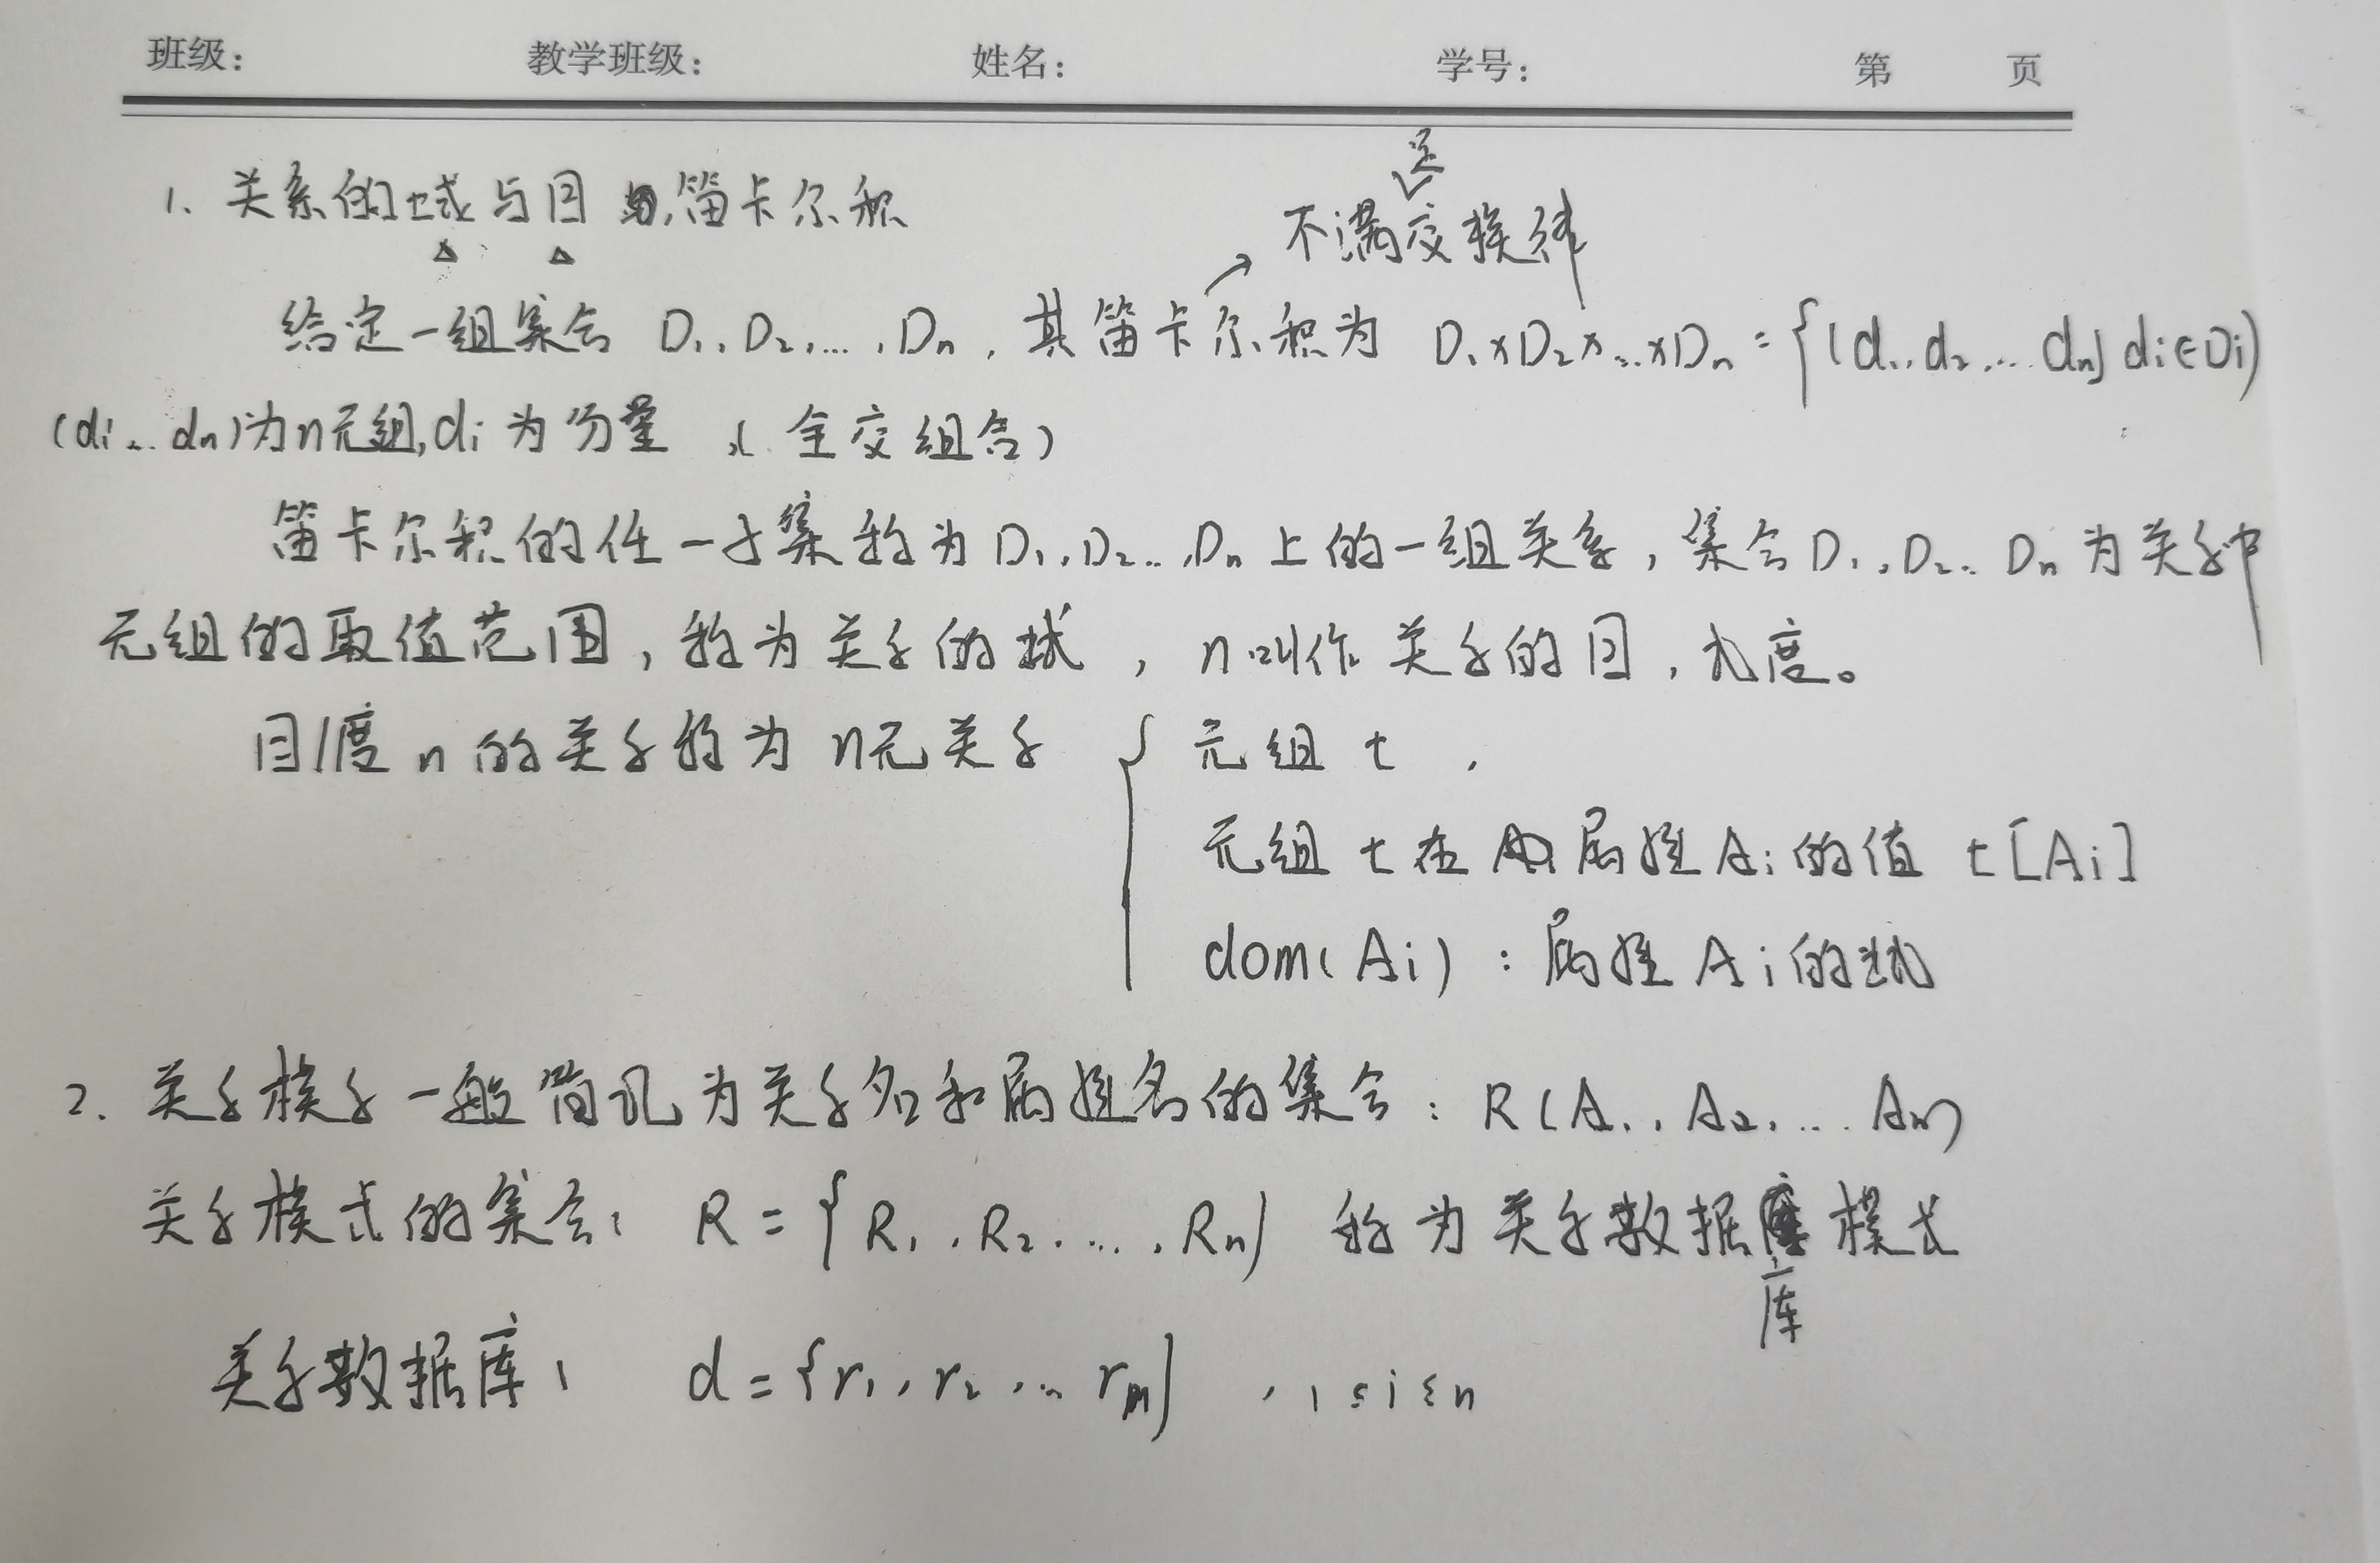 班级: 教学班级: 姓名: 学号: 第 页
1. 关系的域与目 笛卡尔积
不满足交换律
给定一组集合 D₁, D₂, ..., Dn, 其笛卡尔积为 D₁×D₂×...×Dn = {(d₁, d₂, ... dn) di∈Di}
(di ... dn)为n元组, di 为分量 (全交组合)
笛卡尔积的任一子集称为 D₁, D₂..., Dn 上的一组关系, 集合 D₁, D₂.. Dn 为关系中
元组的取值范围, 称为关系的域, n叫作关系的目, 或度。
目/度 n 的关系称为 n元关系
元组 t
元组 t 在 属性 Ai 的值 t[Ai]
dom(Ai) : 属性 Ai 的域
2. 关系模式一般简记为关系名和属性名的集合: R(A₁, A₂, ... An)
关系模式的集合: R = {R₁, R₂, ..., Rn} 称为关系数据库模式
关系数据库: d = {r₁, r₂, ... rm} , 1≤i≤n